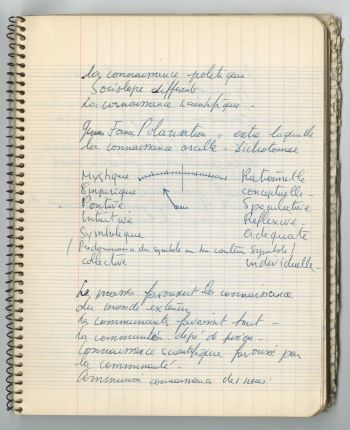 La connaissance politique
Sociologie différente.
La connaissance scientifique -
Polarisation = entre laquelle
la connaissance oscille - Dichotomies
Mystique Rationnelle
Empirique conceptuelle -
Positive Spéculative
Intuitive Réflexive -
Symbolique adéquate
(Prédominance du symbole ou du contenu symbolisé)
collective individuelle -
favorisent la connaissance
du monde extérieur
La communauté favorisent tout -
La communion
Connaissance scientifique favorisé par
la communauté -
Communion connaissance de nous